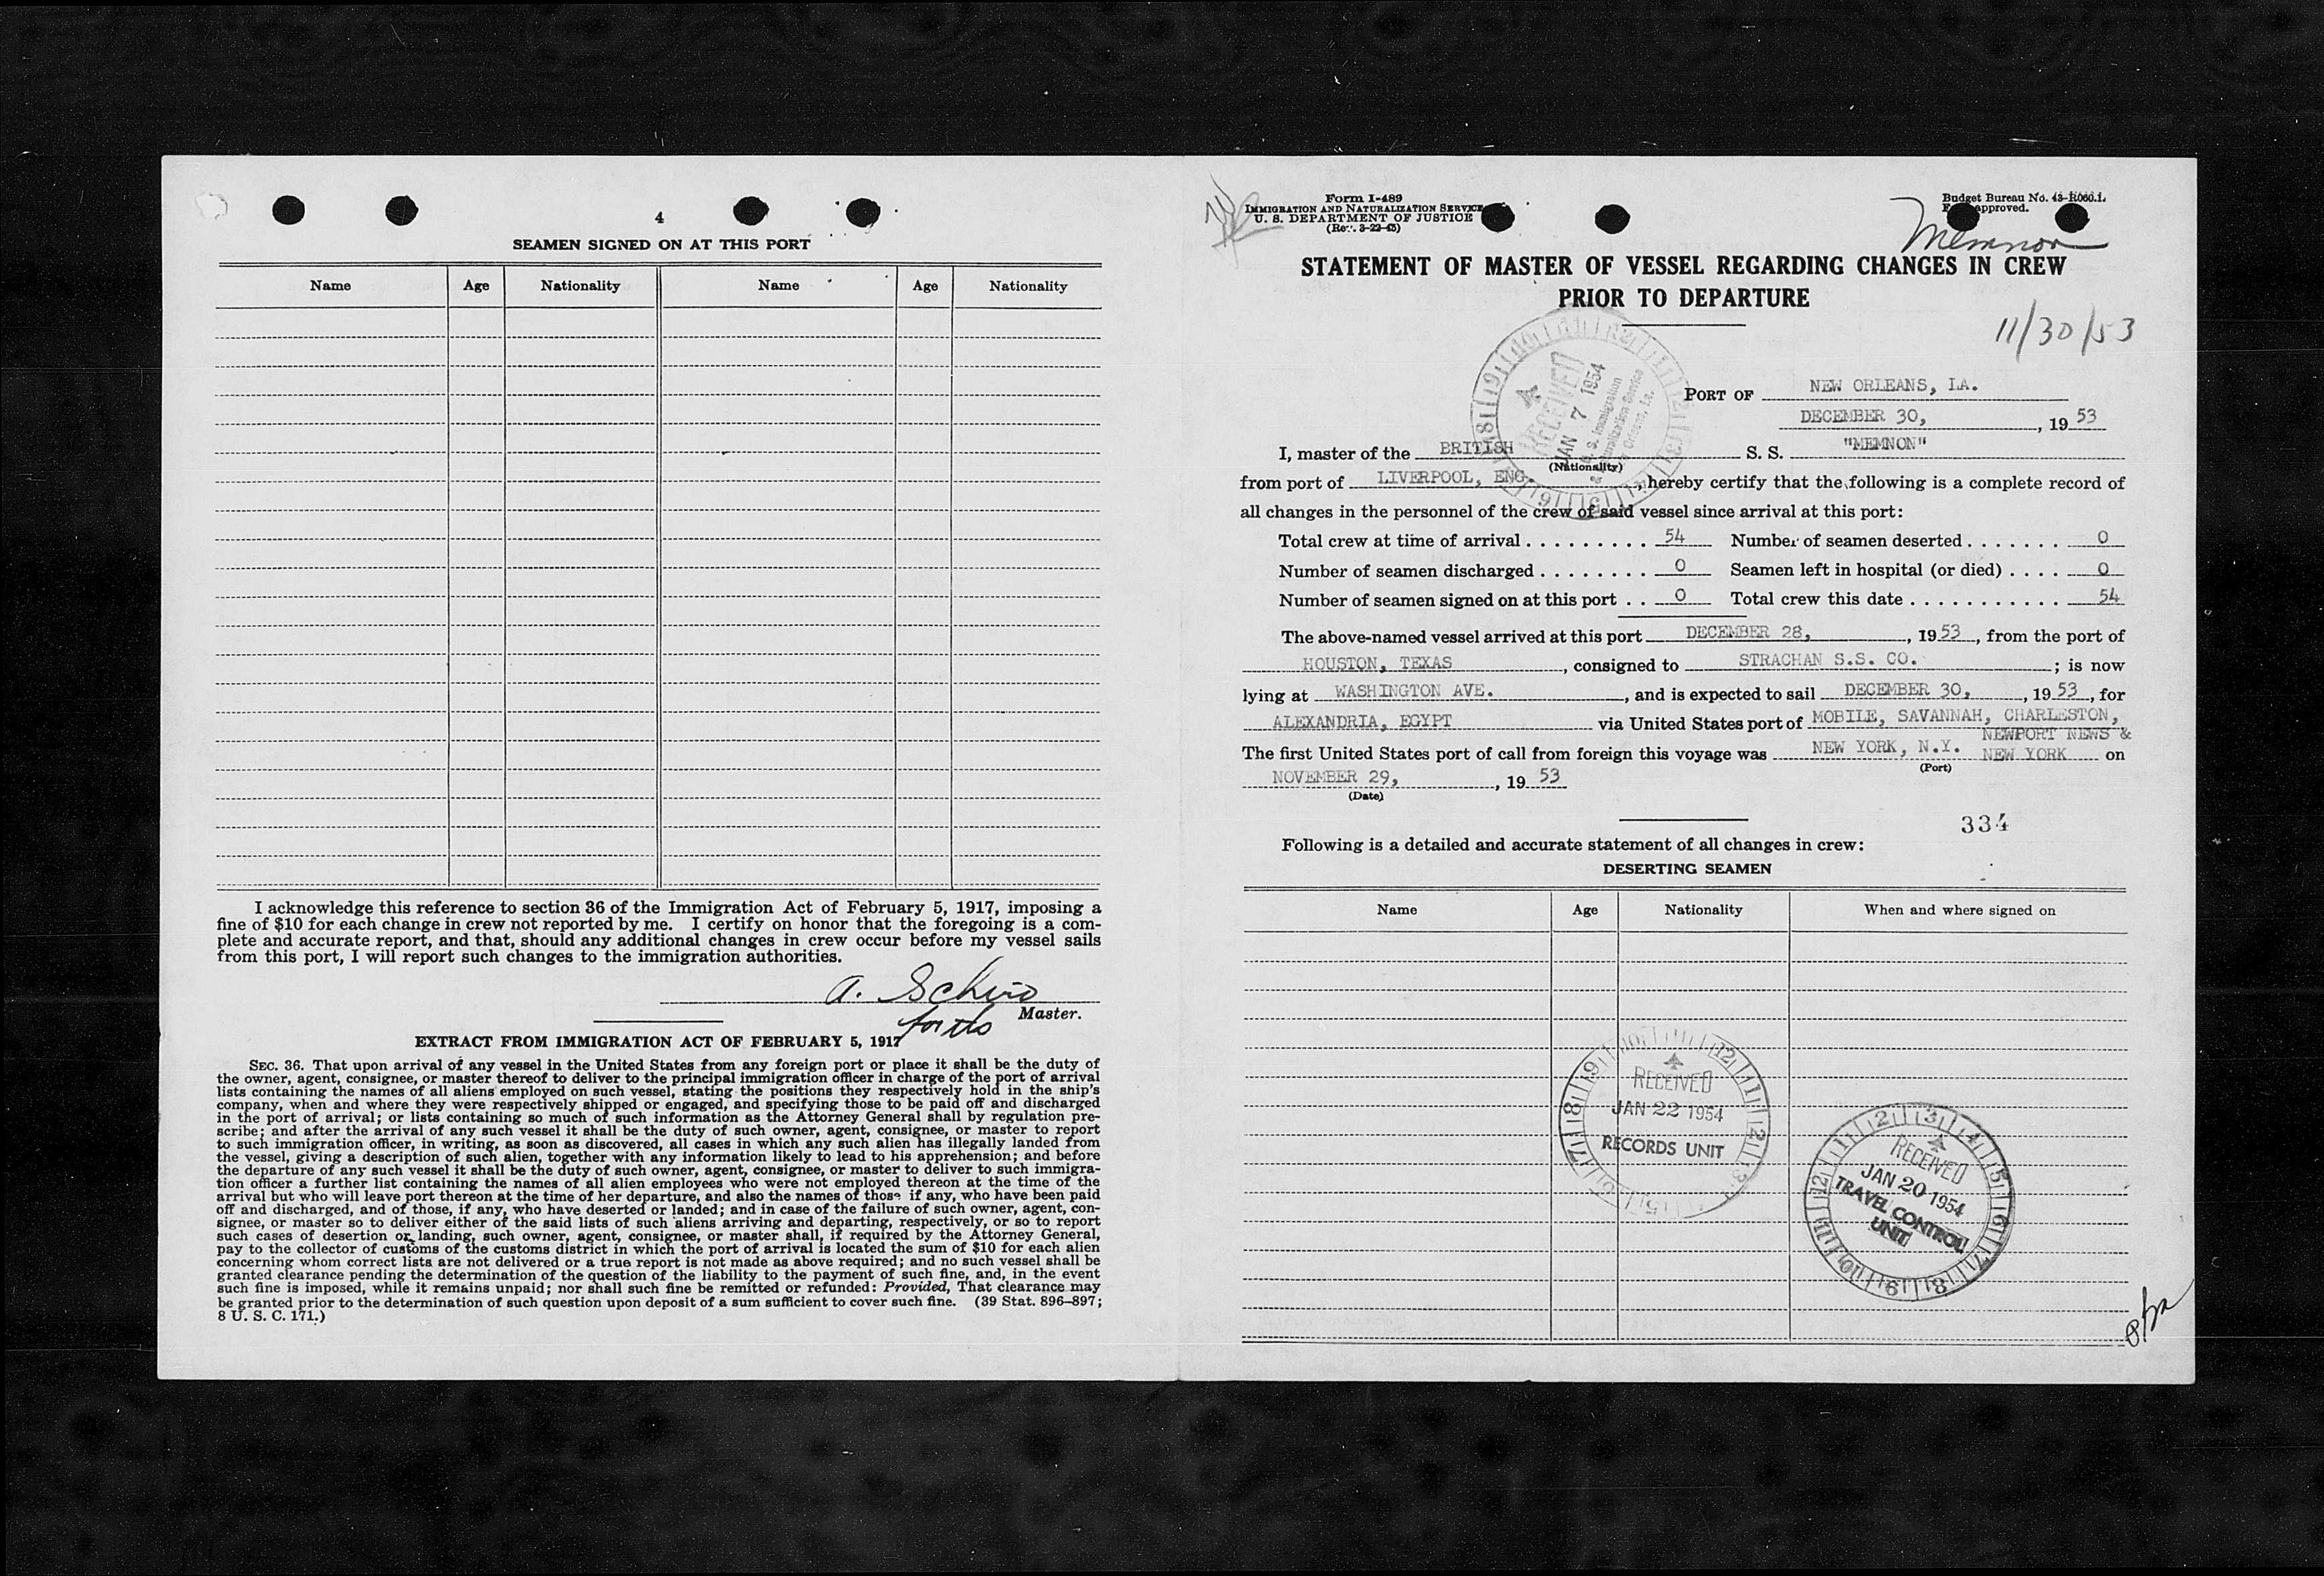 4
SEAMEN SIGNED ON AT THIS PORT
Name Age Nationality Name Age Nationality
I acknowledge this reference to section 36 of the Immigration Act of February 5, 1917, imposing a
fine of $10 for each change in crew not reported by me. I certify on honor that the foregoing is a com-
plete and accurate report, and that, should any additional changes in crew occur before my vessel sails
from this port, I will report such changes to the immigration authorities.
A. Schiro
Master.
EXTRACT FROM IMMIGRATION ACT OF FEBRUARY 5, 1917
SEC. 36. That upon arrival of any vessel in the United States from any foreign port or place it shall be the duty of
the owner, agent, consignee, or master thereof to deliver to the principal immigration officer in charge of the port of arrival
lists containing the names of all aliens employed on such vessel, stating the positions they respectively hold in the ship's
company, when and where they were respectively shipped or engaged, and specifying those to be paid off and discharged
in the port of arrival; or lists containing so much of such information as the Attorney General shall by regulation pre-
scribe; and after the arrival of any such vessel it shall be the duty of such owner, agent, consignee, or master to report
to such immigration officer, in writing, as soon as discovered, all cases in which any such alien has illegally landed from
the vessel, giving a description of such alien, together with any information likely to lead to his apprehension; and before
the departure of any such vessel it shall be the duty of such owner, agent, consignee, or master to deliver to such immigra-
tion officer a further list containing the names of all alien employees who were not employed thereon at the time of the
arrival but who will leave port thereon at the time of her departure, and also the names of those if any, who have been paid
off and discharged, and of those, if any, who have deserted or landed; and in case of the failure of such owner, agent, con-
signee, or master so to deliver either of the said lists of such aliens arriving and departing, respectively, or so to report
such cases of desertion or landing, such owner, agent, consignee, or master shall, if required by the Attorney General,
pay to the collector of customs of the customs district in which the port of arrival is located the sum of $10 for each alien
concerning whom correct lists are not delivered or a true report is not made as above required; and no such vessel shall be
granted clearance pending the determination of the question of the liability to the payment of such fine, and, in the event
such fine is imposed, while it remains unpaid; nor shall such fine be remitted or refunded: Provided, That clearance may
be granted prior to the determination of such question upon deposit of a sum sufficient to cover such fine. (39 Stat. 896–897;
8 U. S. C. 171.)
Form I-489
IMMIGRATION AND NATURALIZATION SERVICE
U. S. DEPARTMENT OF JUSTICE
(Rev. 3-22-45)
Budget Bureau No. 43-R060.1.
approved.
Memnon
STATEMENT OF MASTER OF VESSEL REGARDING CHANGES IN CREW
PRIOR TO DEPARTURE
11/30/53
RECEIVED
JAN 7 1954
U. S. Immigration
& Naturalization Service
New Orleans, La.
PORT OF NEW ORLEANS, LA.
DECEMBER 30, , 19 53
I, master of the BRITISH S. S. "MEMNON"
(Nationality)
from port of LIVERPOOL, ENG. , hereby certify that the following is a complete record of
all changes in the personnel of the crew of said vessel since arrival at this port:
Total crew at time of arrival . . . . . . . . . . 54 Number of seamen deserted . . . . . . . 0
Number of seamen discharged . . . . . . . . 0 Seamen left in hospital (or died) . . . . 0
Number of seamen signed on at this port . . 0 Total crew this date . . . . . . . . . . . . 54
The above-named vessel arrived at this port DECEMBER 28, , 19 53 , from the port of
HOUSTON, TEXAS , consigned to STRACHAN S.S. CO. ; is now
lying at WASHINGTON AVE. , and is expected to sail DECEMBER 30, , 19 53 , for
ALEXANDRIA, EGYPT via United States port of MOBILE, SAVANNAH, CHARLESTON,
NEWPORT NEWS &
The first United States port of call from foreign this voyage was NEW YORK, N.Y. NEW YORK on
(Port)
NOVEMBER 29, , 19 53
(Date)
334
Following is a detailed and accurate statement of all changes in crew:
DESERTING SEAMEN
Name Age Nationality When and where signed on
RECEIVED
JAN 22 1954
RECORDS UNIT
RECEIVED
JAN 20 1954
TRAVEL CONTROL
UNIT